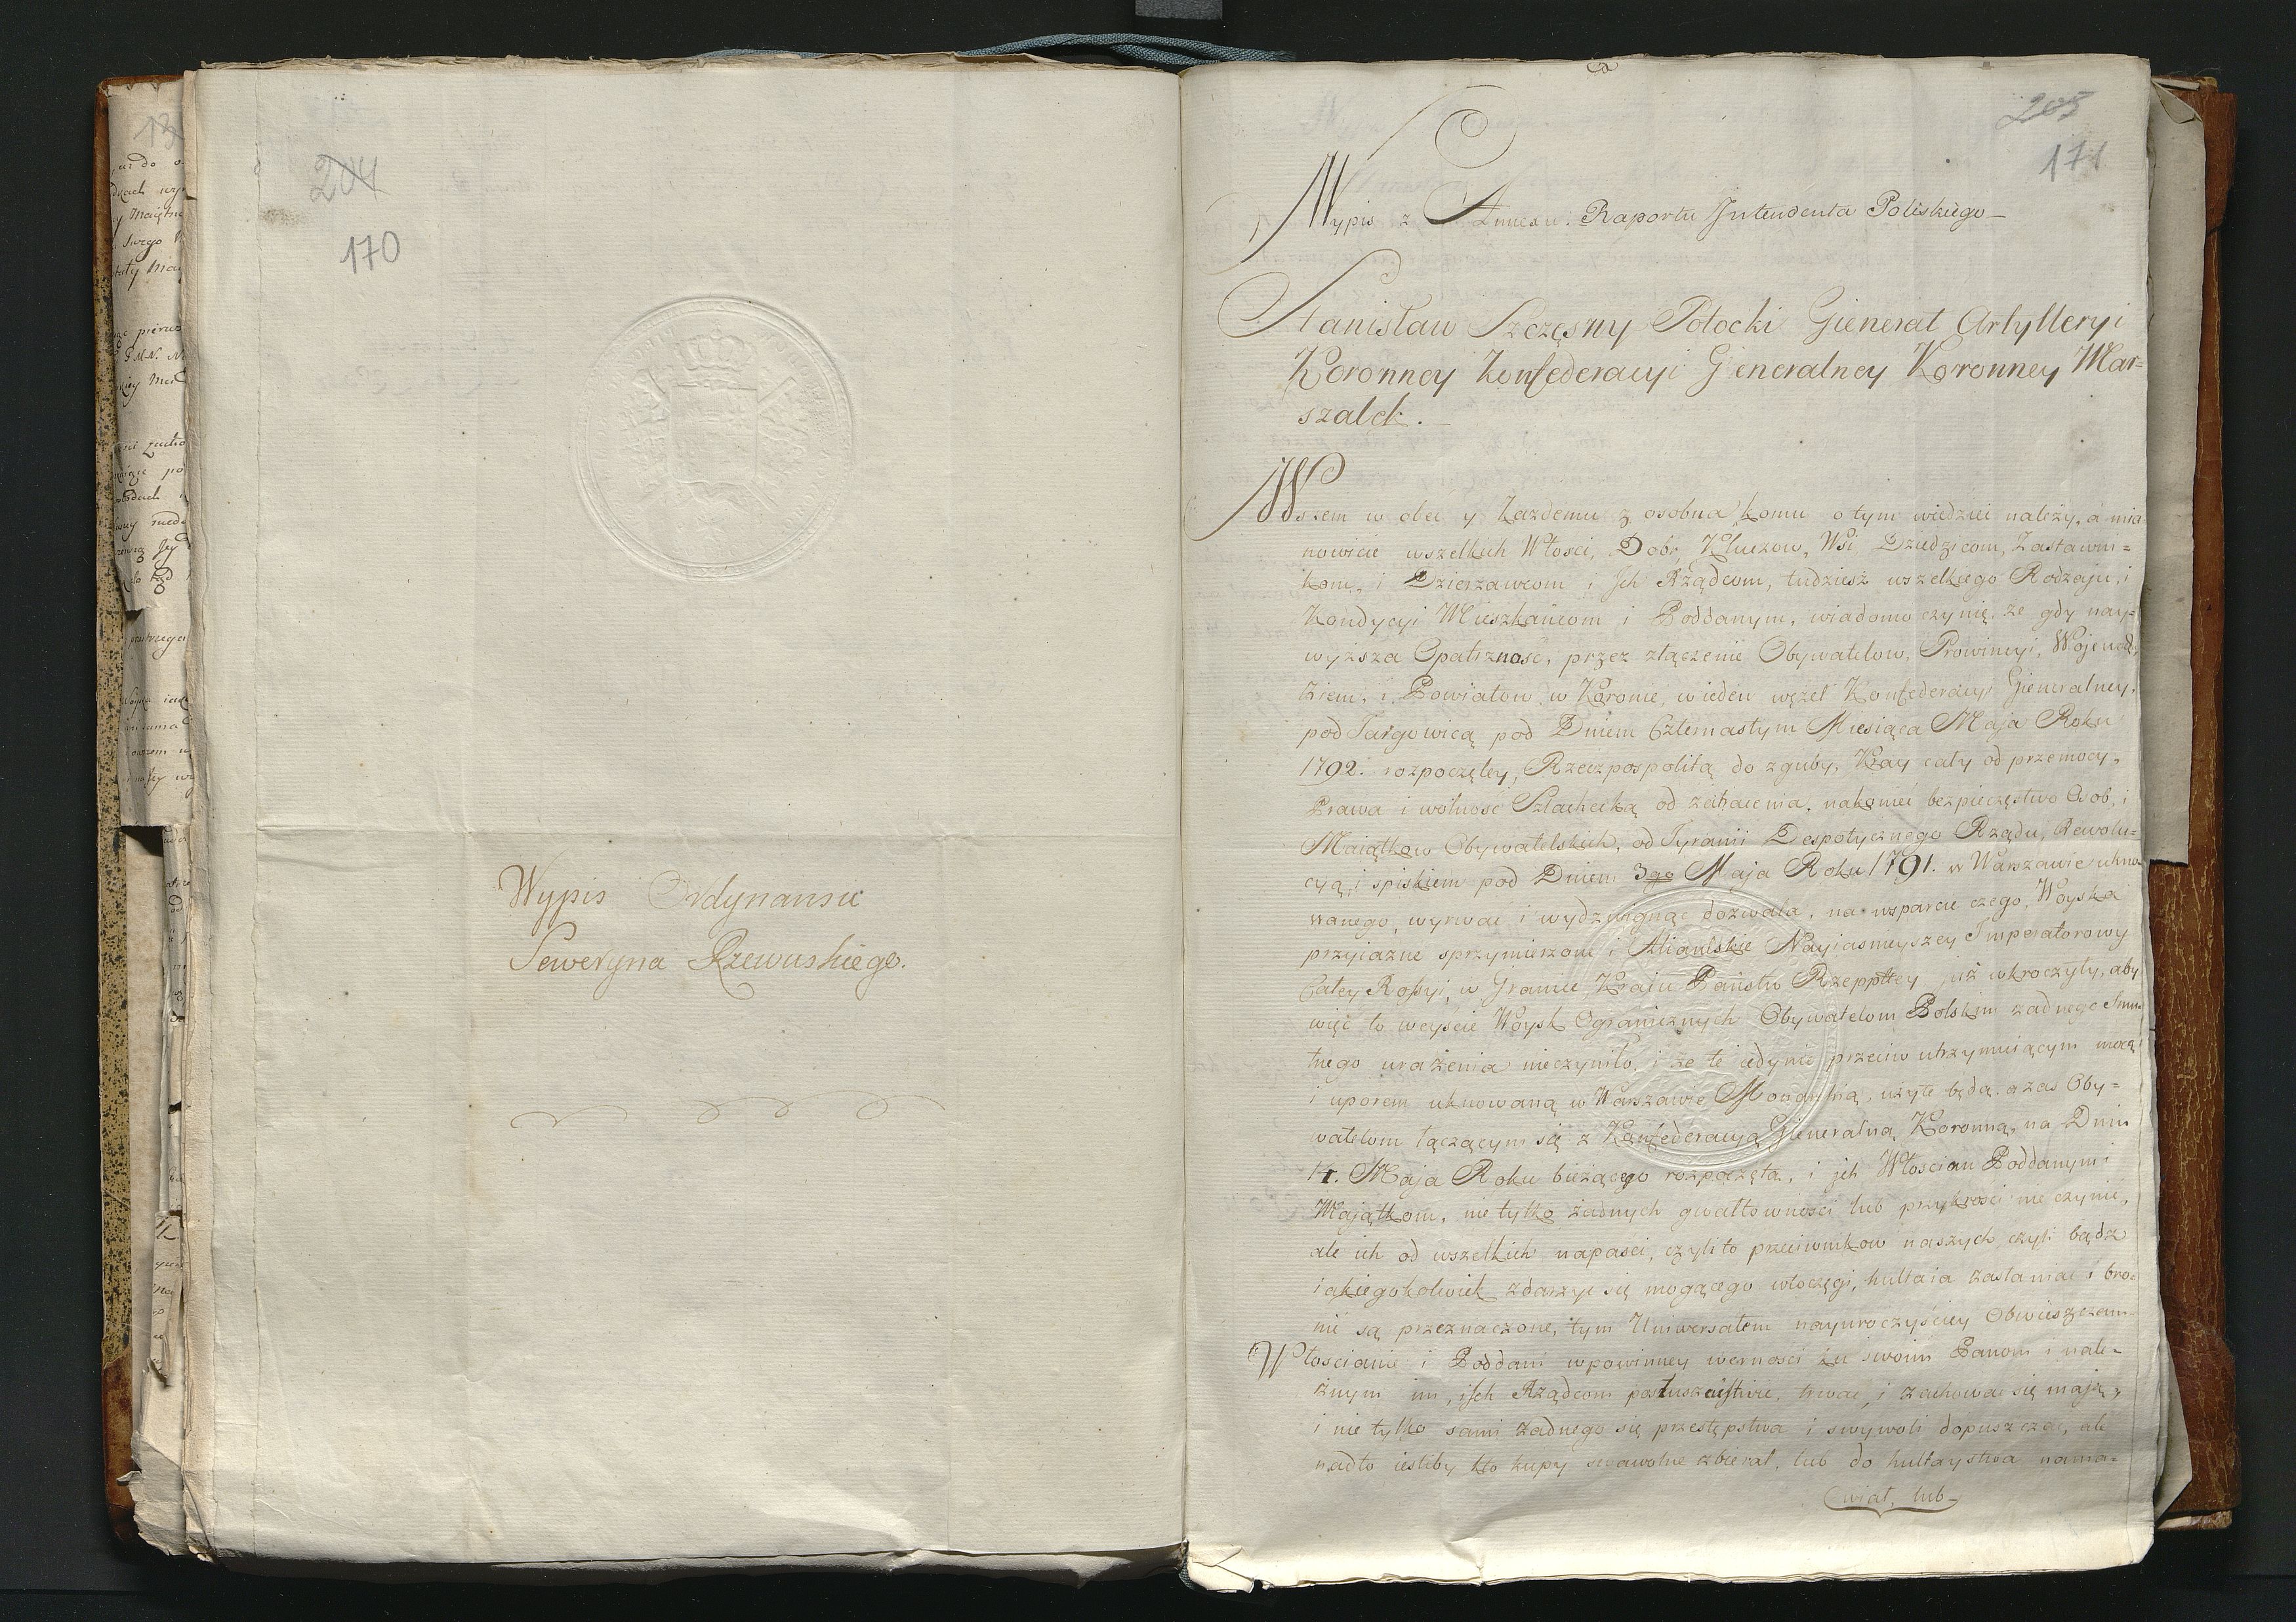 204
170
Wypis Ordynansu
Seweryna Rzewuskiego.
205
171
Wypis z Annexu: Raportu Jntendenta Poliskiego
Stanisław Szczęsny Potocki Gienerał Artylleryi
Koronney Konfederacyi Generalney Koronney Mar=
szałek.
Wszem w obec y Każdemu z osobna komu o tym wiedzieć należy, a mia
nowicie wszelkich Włosci, Dobr, Kluczow, Wsi Dziedzicom, Zastawni=
kom, i Dzierzawcom i Jch Rządcom, tudziesz wszelkiego Rodzaju, i
Kondycyi Mieszkańcom i Poddanym, wiadomo czynię. że gdy nay=
wyższa Opatrzność, przez złączenie Obywatelow, Prowincyi, Wojewod:
Ziem, i Powiatow w Koronie, w ieden węzeł Konfederacyi Gieneralney,
pod Targowicą pod Dniem Czternastym Miesiąca Maja Roku
1792. rozpoczętey, Rzeczpospolitą do zguby, Kray cały od przemocy,
Prawa i wolnosc Szlachecką od zatracenia, nakoniec bezpieczęstwo Osob, i
Maiątkow Obywatelskich, od Tyranii Despotycznego Rządu, Rewolu=
cyą, i spiskiem pod Dniem 3go Maja Roku 1791. w Warszawie ukno
wanego, wyrwac i wydzwignąc dozwala, na wsparcie czego, Woyska
przyiazne sprzymierzone i Alianskie Nayiasnieyszey Jmperatorowy
Całey Rossyi, w Granice Kraiu Państw Rzeppltey już wkroczyły, aby
więc to weyście Woysk Ogranicznych Obywatelom Polskim zadnego Smu
tnego urażenia nieczyniło, i że te iedynie przeciw utrzymuiącym mocą
i uporem uknowaną w Warszawie Monarchią, użyte będą. a zas Oby=
watelom łączącym się z Konfederacyą Gieneralną Koronną, na Dniu
14. Maja Roku bieżącego rozpoczętą, i jch Włoscian Poddanym i
Majątkom, nie tylko żadnych gwałtownosci lub przykrosci nie czynić,
ale ich od wszelkich napasci, czyli to przeciwnikow naszych, czyli bądz
iakiegokolwiek zdarzyc się mogącego włoczęgi, hultaia zasłaniac i bro=
nić są przeznaczone, tym Uniwersałem nayuroczyściey Obwieszczam
Włoscianie i Poddani w powinney wiernosci ku swoim Panom i nale=
żnym im, i Jch Rządcom posłuszeństwie, trwac, i zachowac się mają,
i nie tylko sami żadnego się przestępstwa i swywoli dopuszczac, ale
nadto iesliby kto kupy swawolne zbierał, lub do hultaystwa nama=
wiał, lub